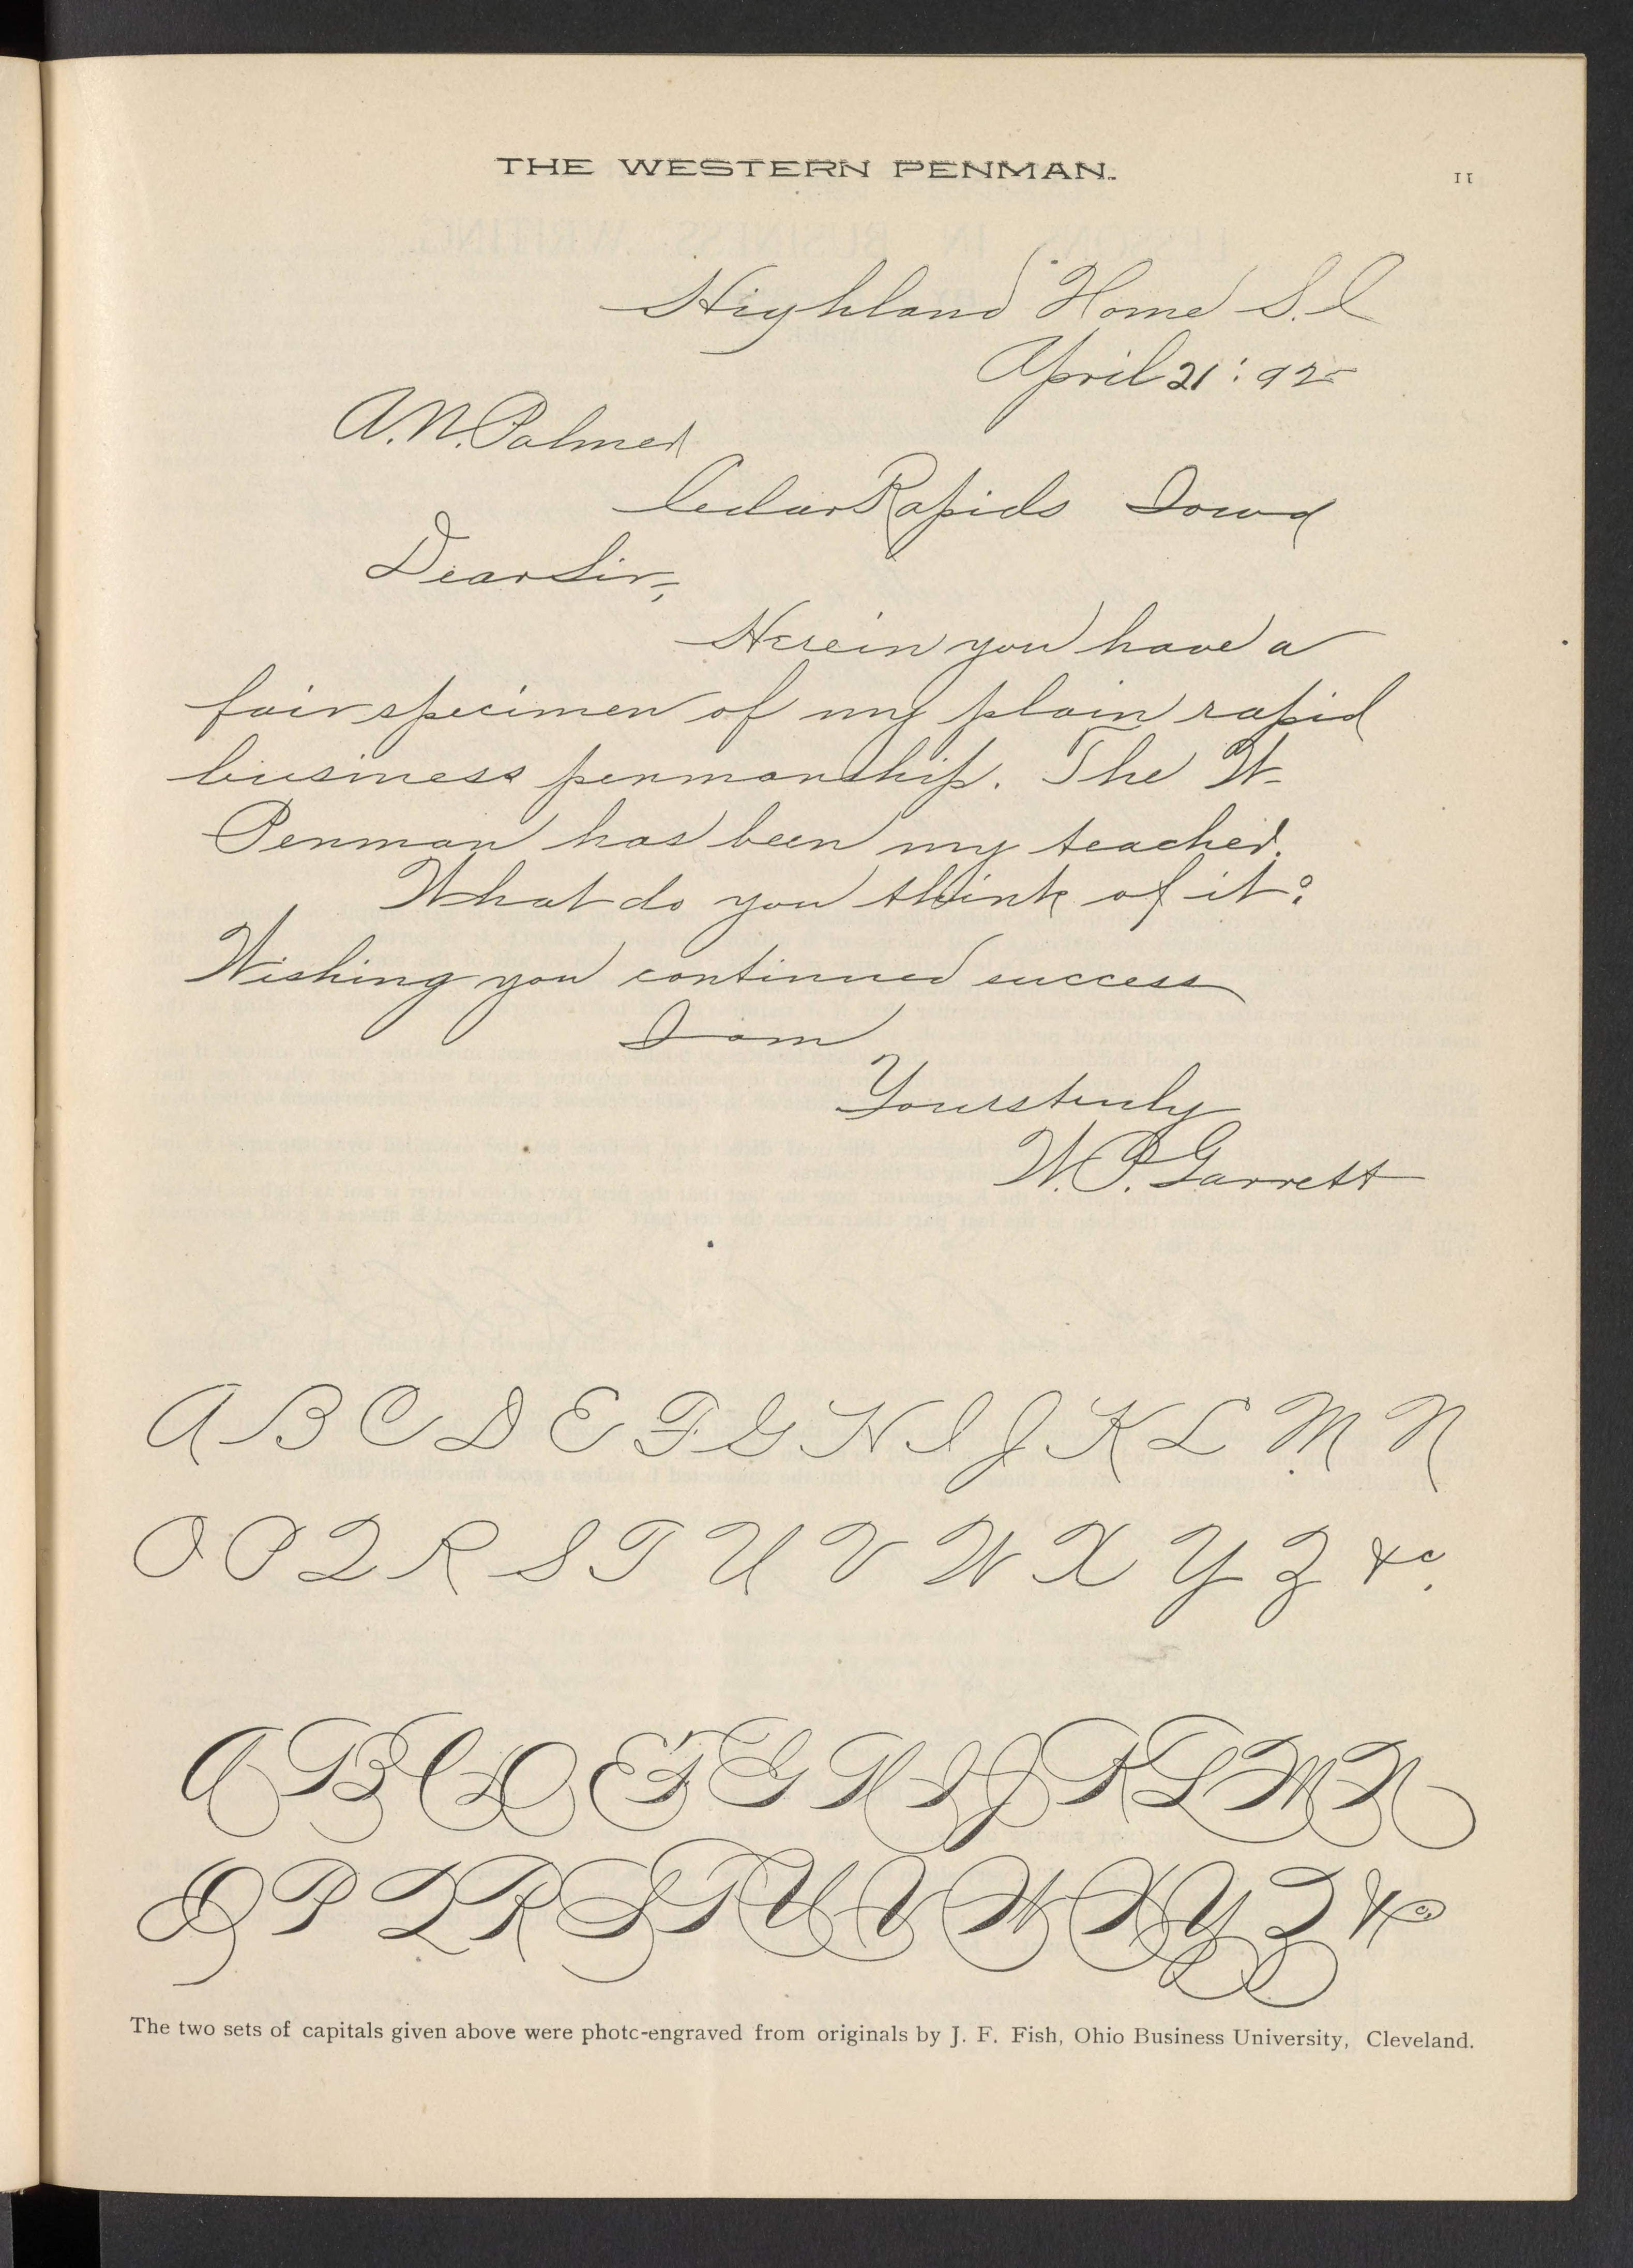 THE WESTERN PENMAN.
11
Highland Home S. C
April 21 : 92
A. N. Palmer
Cedar Rapids Iowa
Dear Sir,
Herein you have a
fair specimen of my plain rapid
business penmanship. The W.
Penman has been my teacher.
What do you think of it?
Wishing you continued success
I am
Yours truly
W. P. Garrett
A B C D E F G H I J K L M N
O P Q R S T U V W X Y Z &c.
A B C D E F G H I J K L M N
O P Q R S T U V W X Y Z &c
The two sets of capitals given above were photo-engraved from originals by J. F. Fish, Ohio Business University, Cleveland.